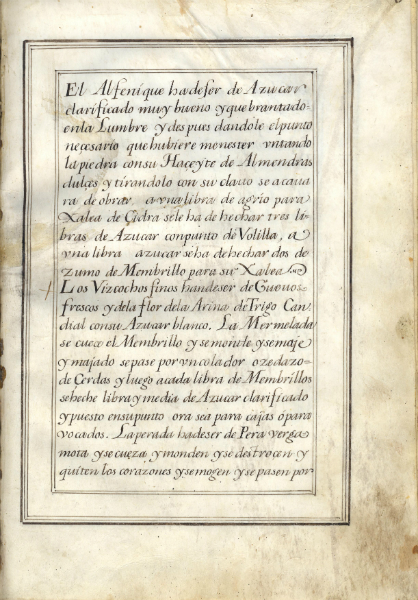 El Alfenique hadeser de Azucar
clarificado muy bueno y quebrantado
en la Lumbre y despues dandole el punto
necesario que hubiere menester vntando
la piedra con su Haceyte de Almendras
dulces y tirandolo con su clauo se acaua
ra de obrar a vna libra de agrio para
Xalea de Cidra sele ha de hechar tres li
bras de Azucar con punto de Volilla, a
vna libra azucar seha de hechar dos de
zumo de Membrillo para su Xalea
Los Vizcochos finos han deser de Gueuos
frescos y dela flor dela Arina de Trigo Can
dial con su Azucar blanco. La Mermelada
se cueze el Membrillo y se monde y semaje
y majado se pase por vn colador o zedazo
de Cerdas y luego a cada libra de Membrillos
seheche libra y media de Azucar clarificado
y puesto en su punto ora sea para cajas o para
vocados. La perada ha de ser de Pera verga
mota y se cueza y monden y se destrocen y
quiten los corazones y se mogen y se pasen por